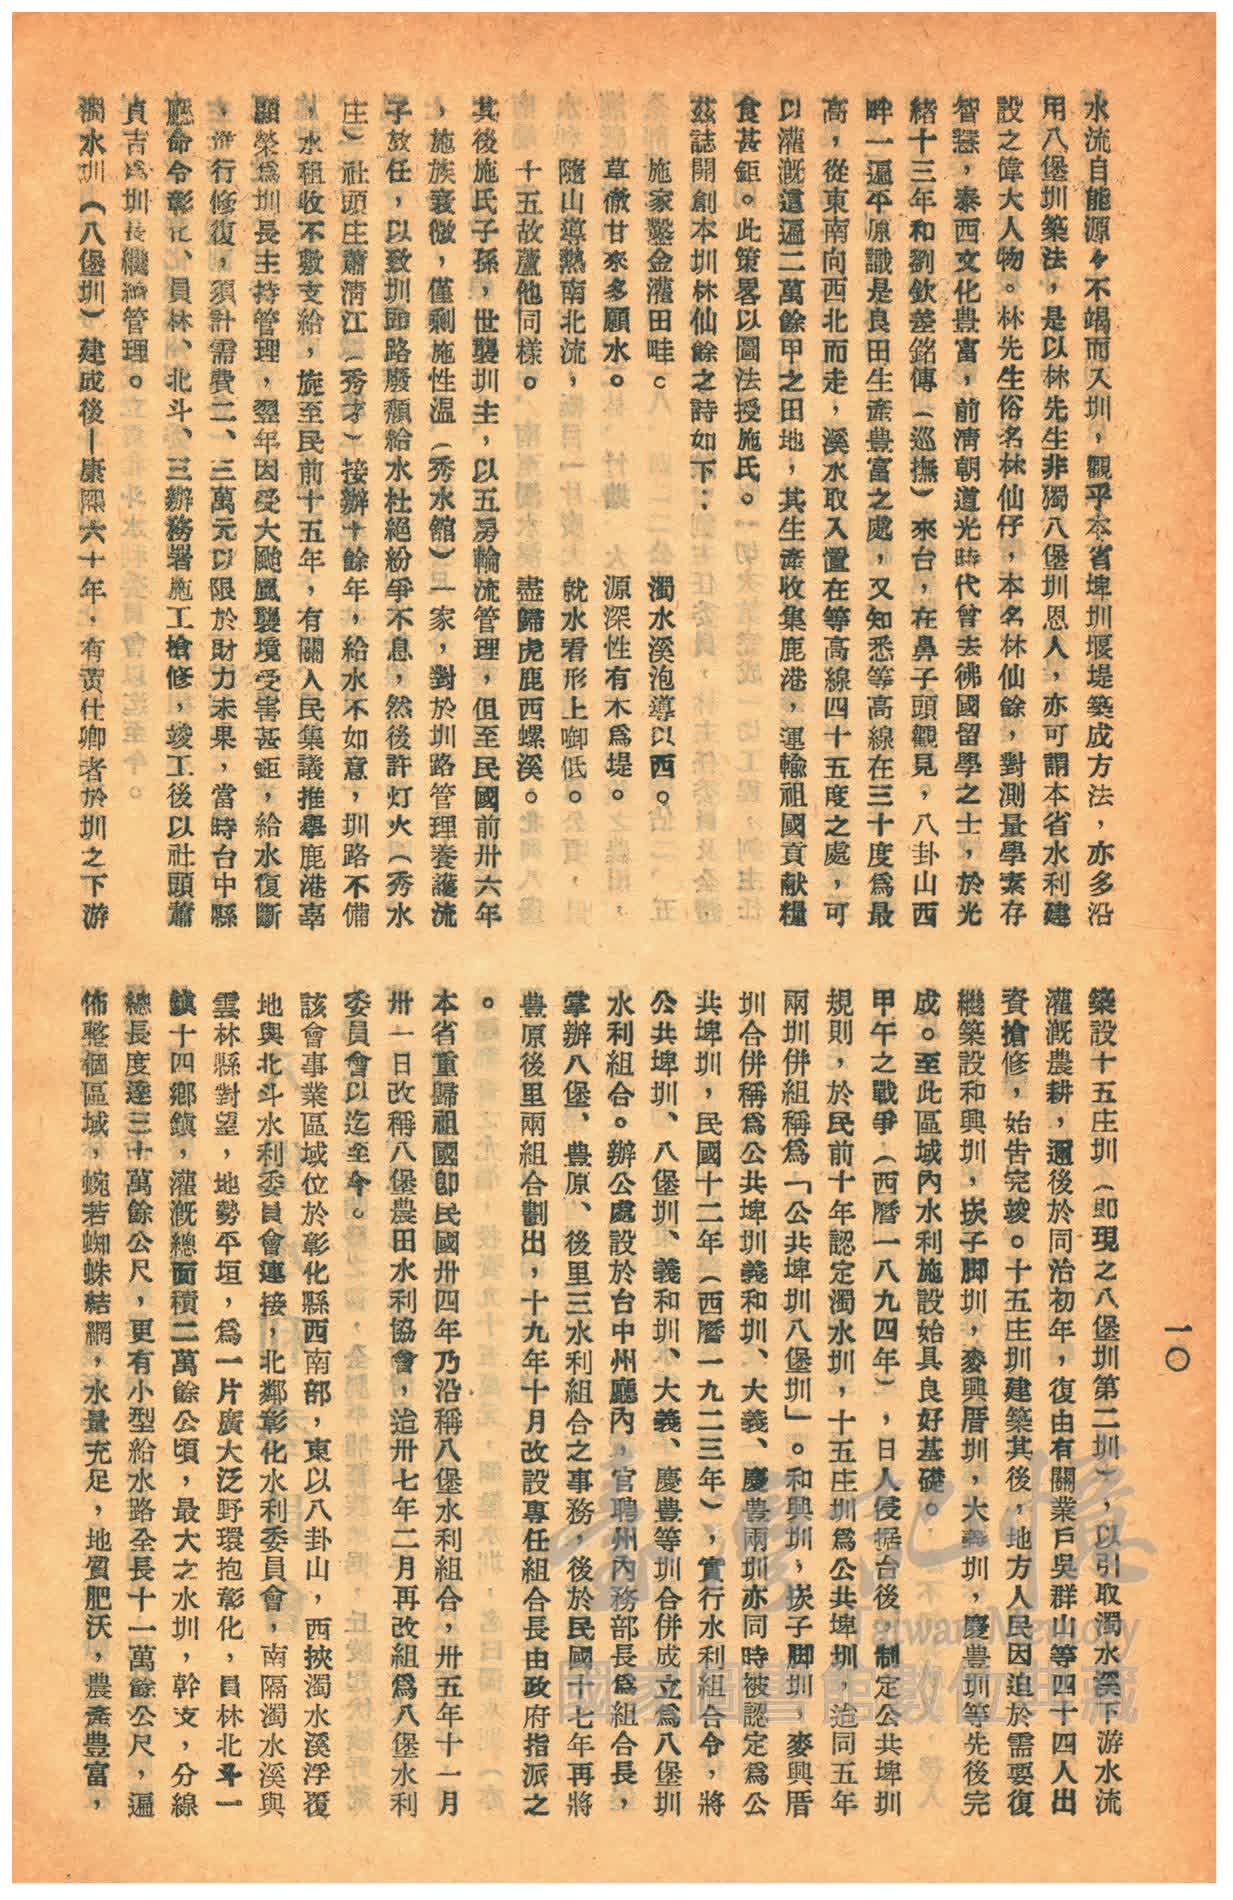 水流自能源々不竭而入圳，觀乎本省埤圳堰堤築成方法，亦多沿
用八堡圳築法，是以林先生非獨八堡圳恩人，亦可謂本省水利建
設之偉大人物。林先生俗名林仙仔，本名林仙餘，對測量學素存
智慧，泰西文化豊富，前清朝道光時代曾去彿國留學之士，於光
緒十三年和劉欽差銘傳（巡撫）來台，在鼻子頭觀見，八卦山西
畔一遍平原識是良田生產豊富之處，又知悉等高線在三十度爲最
高，從東南向西北而走，溪水取入置在等高線四十五度之處，可
以灌漑這遍二萬餘甲之田地，其生產收集鹿港，運輸祖國貢献糧
食甚鉅。此策畧以圖法授施氏。
茲誌開創本圳林仙餘之詩如下：
施家鑿金灌田畦。　濁水溪泡導以西。
草徹甘來多願水。　源深性有木爲堤。
隨山導熱南北流，　就水看形上啣低。
十五故蘆他同樣。　盡歸虎鹿西螺溪。
其後施氏子孫，世襲圳主，以五房輪流管理，但至民國前卅六年
，施族衰微，僅剩施性溫（秀水舘）一家，對於圳路管理養護流
子放任，以致圳路廢頹給水杜絕紛爭不息，然後許灯火（秀水
庄）社頭庄蕭淸江（秀才）接辦十餘年，給水不如意，圳路不備
，水租收不敷支給，旋至民前十五年，有關人民集議推擧鹿港辜
顯榮爲圳長主持管理，翌年因受大颱風襲境受害甚鉅，給水復斷
，進行修復，須計需費二、三萬元以限於財力未果，當時台中縣
廳命令彰化、員林、北斗、三辦務署施工搶修，竣工後以社頭蕭
貞吉爲圳長繼續管理。
濁水圳（八堡圳）建成後—康熙六十年，有黃仕卿者於圳之下游
築設十五庄圳（即現之八堡圳第二圳），以引取濁水溪下游水流
灌漑農耕，邇後於同治初年，復由有關業戶吳群山等四十四人出
資搶修，始告完竣。十五庄圳建築其後，地方人民因迫於需要復
繼築設和興圳，崁子脚圳，麥興厝圳，大義圳，慶豊圳等先後完
成。至此區域內水利施設始具良好基礎。
甲午之戰爭（西曆一八九四年），日人侵据台後，制定公共埤圳
規則，於民前十年認定濁水圳，十五庄圳爲公共埤圳，迨同五年
兩圳併組稱爲「公共埤圳八堡圳」。和興圳，崁子脚圳，麥興厝
圳合併稱爲公共埤圳義和圳、大義、慶豊兩圳亦同時被認定爲公
共埤圳，民國十二年（西曆一九二三年），實行水利組合令，將
公共埤圳、八堡圳、義和圳、大義、慶豊等圳合併成立爲八堡圳
水利組合。辦公處設於台中州廳內，官聘州內務部長爲組合長，
掌辦八堡、豊原、後里三水利組合之事務，後於民國十七年再將
豊原後里兩組合劃出，十九年十月改設專任組合長由政府指派之
。
本省重歸祖國即民國卅四年乃沿稱八堡水利組合，卅五年十一月
卅一日改稱八堡農田水利協會，迨卅七年二月再改組爲八堡水利
委員會以迄至今。
該會事業區域位於彰化縣西南部，東以八卦山，西挾濁水溪浮覆
地與北斗水利委員會連接，北鄰彰化水利委員會，南隔濁水溪與
雲林縣對望，地勢平垣，爲一片廣大泛野環抱彰化，員林北斗一
鎮十四鄉鎮，灌漑總面積二萬餘公頃，最大之水圳，幹支，分線
總長度達三十萬餘公尺，更有小型給水路全長十一萬餘公尺，遍
佈整個區域，蜿若蜘蛛結網，水量充足，地質肥沃，農產豊富，
一〇
臺灣記憶
Taiwan Memory
國家圖書館數位典藏